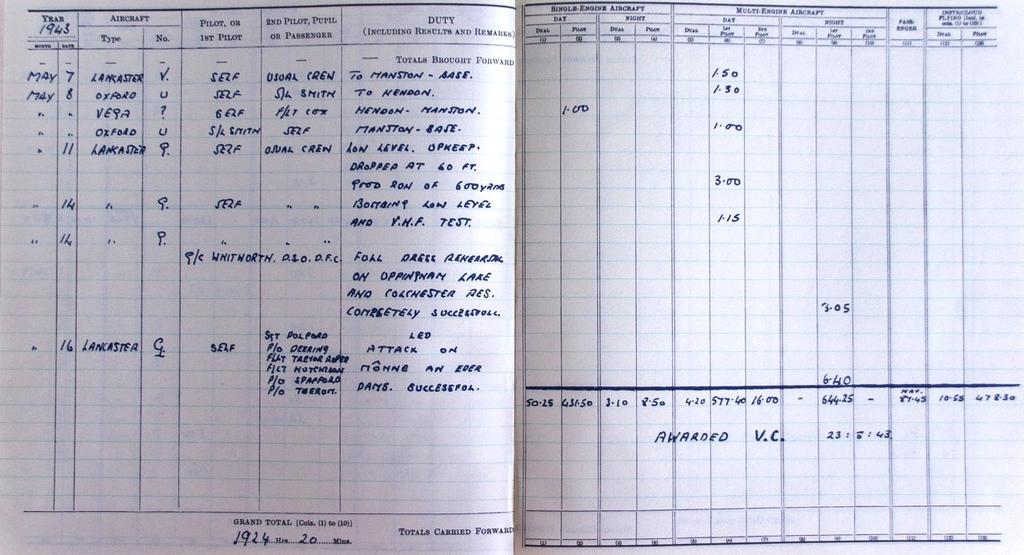 YEAR AIRCRAFT PILOT, OR 2ND PILOT, PUPIL DUTY
1943 1ST PILOT OR PASSENGER (INCLUDING RESULTS AND REMARKS)
MONTH DATE Type No.
— — — — — — TOTALS BROUGHT FORWARD
MAY 7 LANCASTER V. SELF USUAL CREW TO MANSTON - BASE.
MAY 8 OXFORD U SELF S/L SMITH TO HENDON.
" " VEGA ? SELF F/LT COX HENDON - MANSTON.
" " OXFORD U S/L SMITH SELF MANSTON - BASE.
" 11 LANCASTER G. SELF USUAL CREW LOW LEVEL. UPKEEP.
DROPPED AT 60 FT.
GOOD RUN OF 600 YARDS
" 14 " G. SELF " " BOMBING LOW LEVEL
AND V.H.F. TEST.
" 14 " G. " " "
G/C WHITWORTH. D.S.O. D.F.C. FULL DRESS REHEARSAL
ON UPPINGHAM LAKE
AND COLCHESTER RES.
COMPLETELY SUCCESSFUL.
" 16 LANCASTER G. SELF SGT PULFORD LED
P/O DEERING ATTACK ON
F/LT TREVOR ROPER
F/LT HUTCHISON MÖHNE AN EDER
P/O SPAFFORD
P/O TAERUM. DAMS. SUCCESSFUL.
GRAND TOTAL [Cols. (1) to (10)]
1924 Hrs. 20 Mins. TOTALS CARRIED FORWARD
SINGLE-ENGINE AIRCRAFT MULTI-ENGINE AIRCRAFT PASSENGER INSTR/CLOUD FLYING
DAY NIGHT DAY NIGHT
DUAL PILOT DUAL PILOT DUAL 1ST PILOT 2ND PILOT DUAL 1ST PILOT 2ND PILOT DUAL PILOT
(1) (2) (3) (4) (5) (6) (7) (8) (9) (10) (11) (12) (13)
1.50
1.30
1.00
1.00
3.00
1.15
3.05
6.40
50.25 431.50 3.10 8.50 4.20 577.40 16.00 - 644.25 - 87.45 10.55 478.30
AWARDED V.C. 23:5:43.
(1) (2) (3) (4) (5) (6) (7) (8) (9) (10) (11) (12) (13)